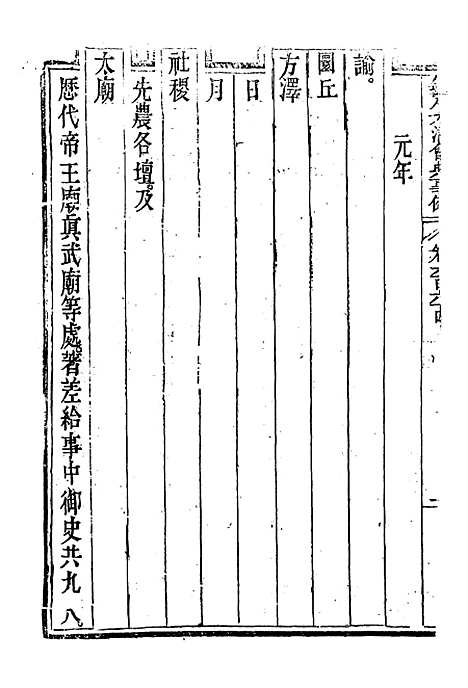 元年
諭。
圜丘
方澤
日
月
社稷
先農各壇。及
太廟
歷代帝王廟。眞武廟等處。著差給事中御史共九人。